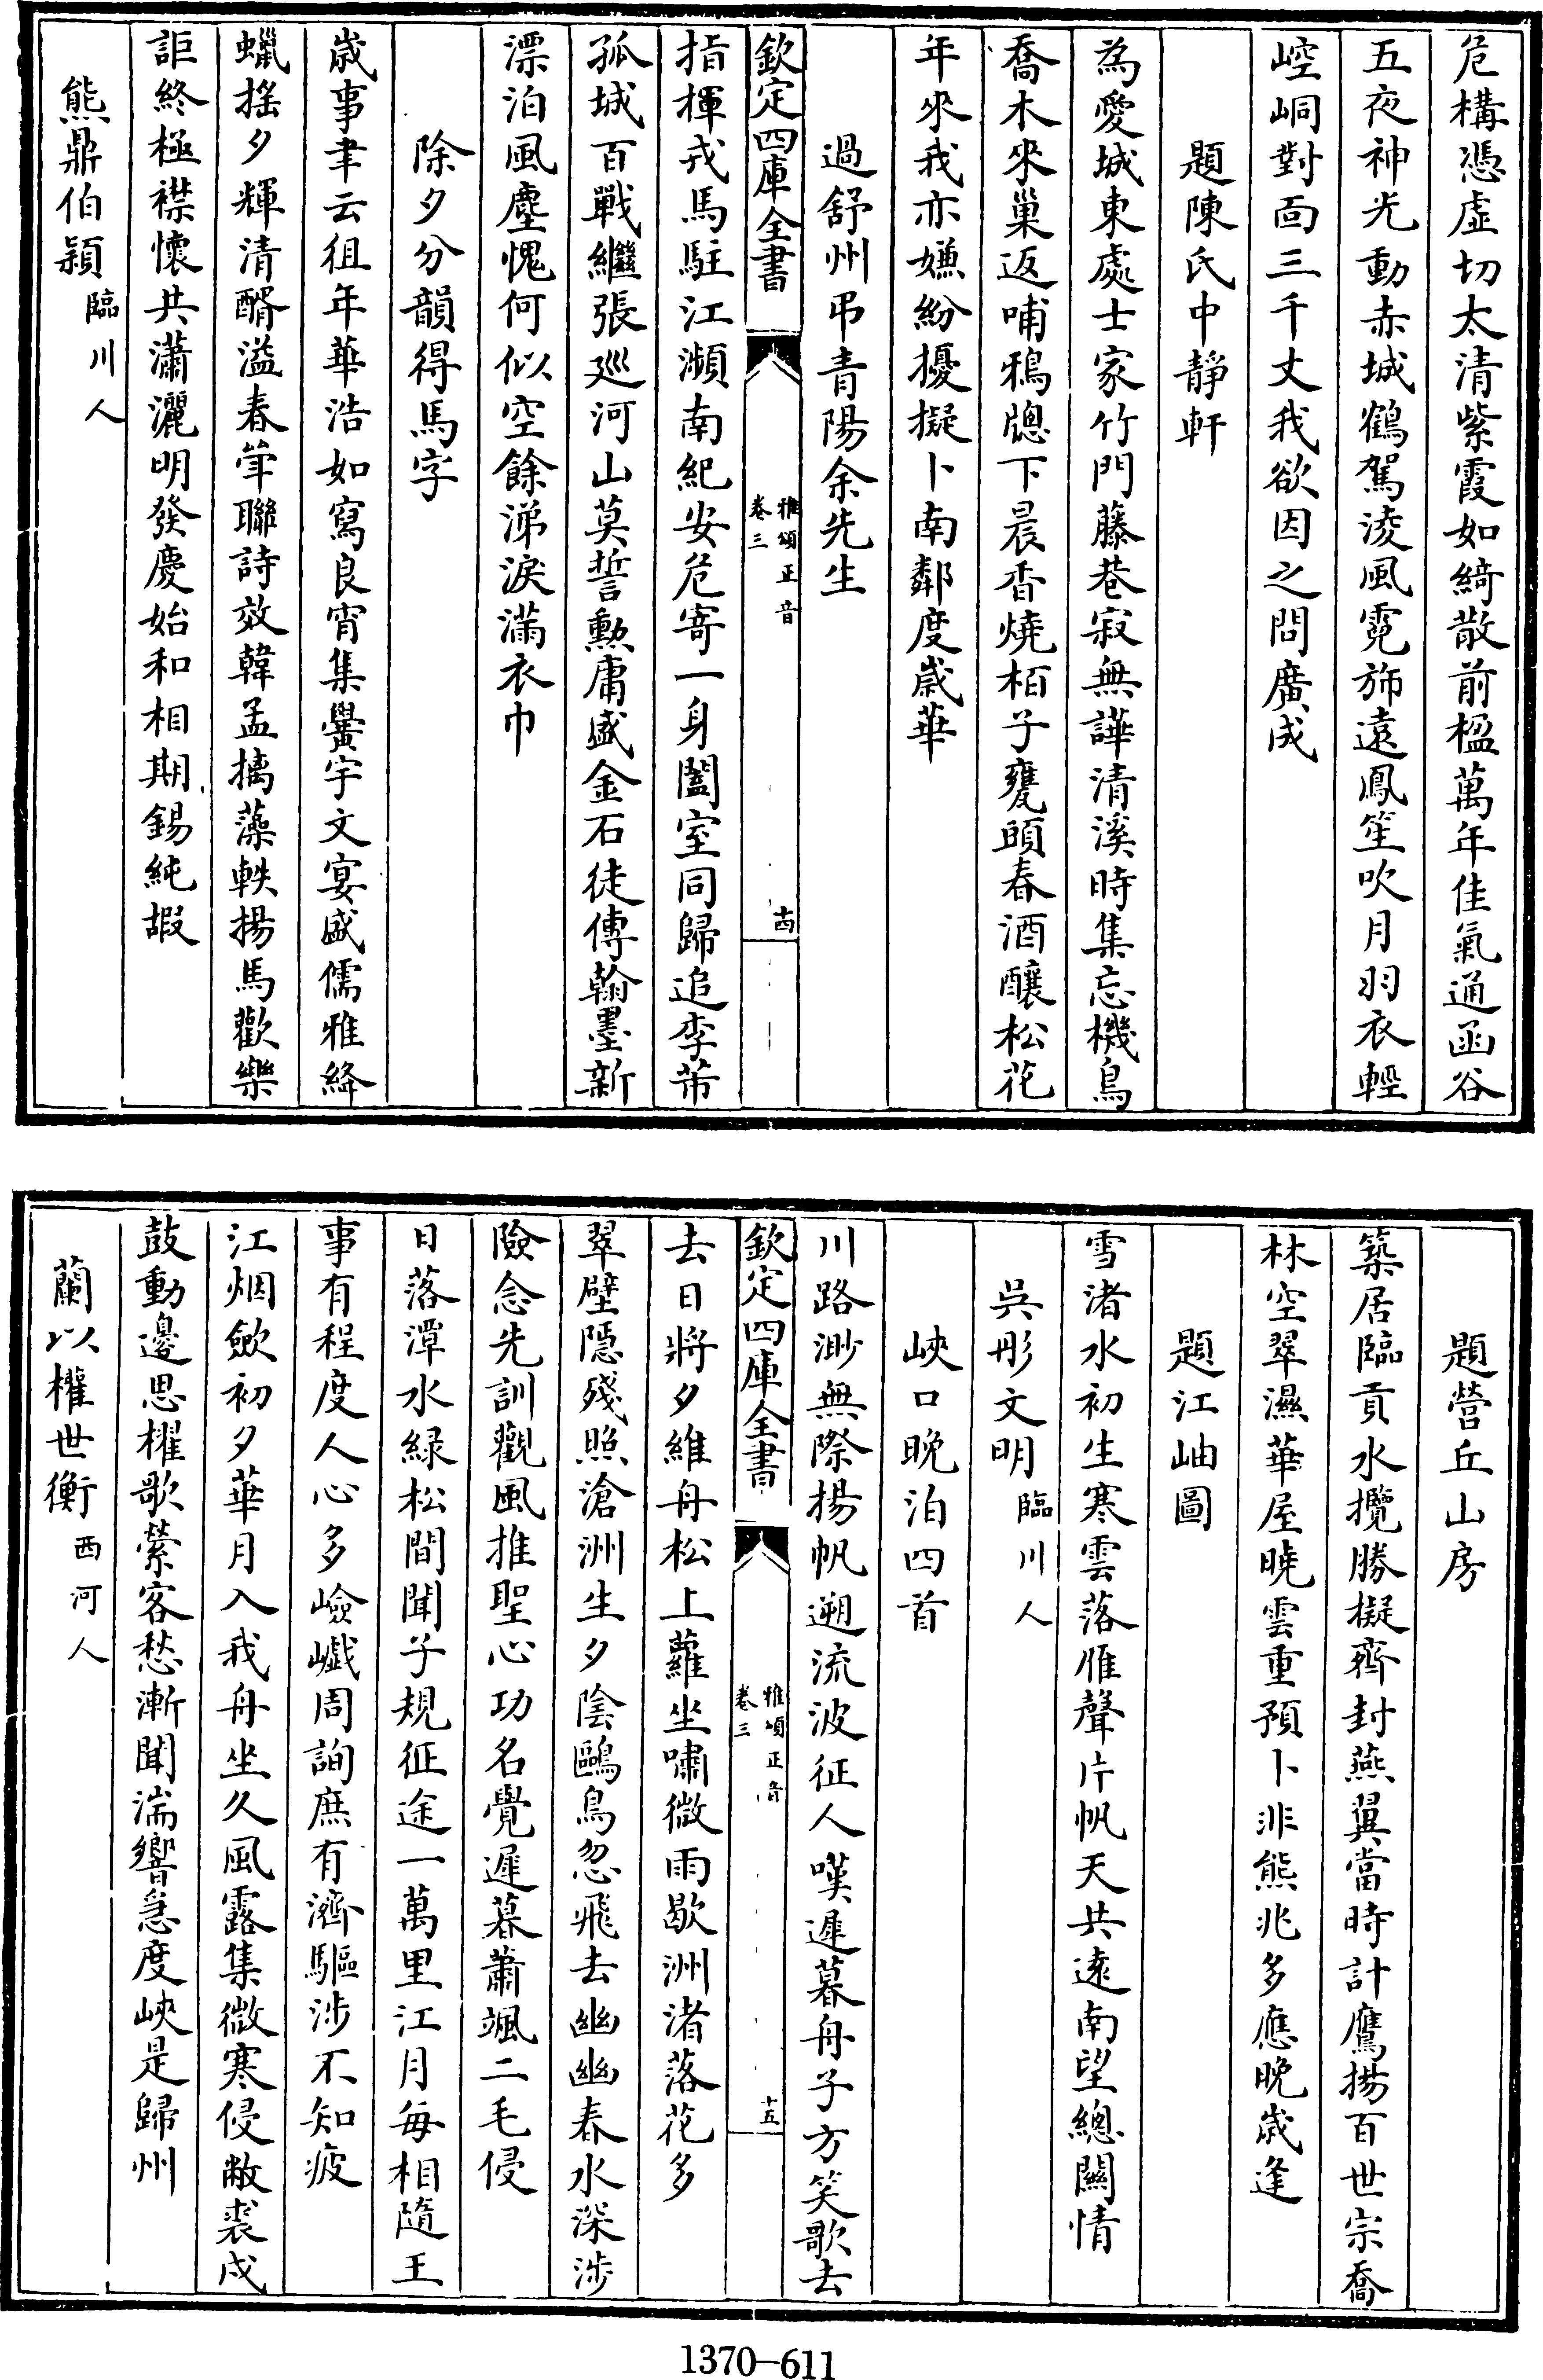 危構憑虛切太清紫霞如綺散前楹萬年佳氣通函谷
五夜神光動赤城鶴駕淩風霓斾遠鳳笙吹月羽衣輕
崆峒對面三千丈我欲因之問廣成
題陳氏中靜軒
為愛城東處士家竹門藤巷寂無譁清溪時集忘機鳥
喬木來巢返哺鴉牕下晨香燒栢子甕頭春酒釀松花
年來我亦嫌紛擾擬卜南鄰度歲華
過舒州弔青陽余先生
欽定四庫全書
雅頌正音
卷三
十四
指揮戎馬駐江瀕南紀安危寄一身闔室同歸追李芾
孤城百戰繼張巡河山莫誓勳庸盛金石徒傳翰墨新
漂泊風塵愧何似空餘涕淚滿衣巾
除夕分韻得馬字
歲事聿云徂年華浩如寫良宵集黌宇文宴盛儒雅絳
蠟搖夕輝清醑溢春斝聯詩效韓孟摛藻軼揚馬歡樂
詎終極襟懷共瀟灑明發慶始和相期錫純嘏
熊鼎伯穎臨川人
題營丘山房
築居臨貢水攬勝擬齊封燕翼當時計鷹揚百世宗喬
林空翠濕華屋曉雲重預卜非熊兆多應晚歲逢
題江岫圖
雪渚水初生寒雲落雁聲片帆天共遠南望總關情
吳彤文明臨川人
峽口晚泊四首
川路渺無際揚帆遡流波征人嘆遲暮舟子方笑歌去
欽定四庫全書
雅頌正音
卷三
十五
去日將夕維舟松上蘿坐嘯微雨歇洲渚落花多
翠壁隱殘照滄洲生夕陰鷗鳥忽飛去幽幽春水深涉
險念先訓觀風推聖心功名覺遲暮蕭颯二毛侵
日落潭水綠松間聞子規征途一萬里江月每相隨王
事有程度人心多嶮巇周詢庶有濟驅涉不知疲
江烟斂初夕華月入我舟坐久風露集微寒侵敝裘戍
鼓動邊思櫂歌縈客愁漸聞湍響急度峽是歸州
蘭以權世衡西河人
1370-611